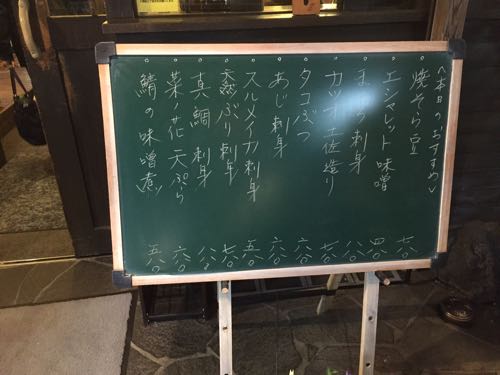 <本日のおすすめ>
焼そら豆 六〇〇
エシャレット味噌 四〇〇
まぐろ刺身 八〇〇
カツオ土佐造り 七〇〇
タコぶつ 六〇〇
あじ刺身 六〇〇
スルメイカ刺身 五〇〇
ぶり刺身 七〇〇
真鯛刺身 八〇〇
菜ノ花天ぷら 六〇〇
鯖の味噌煮 五〇〇